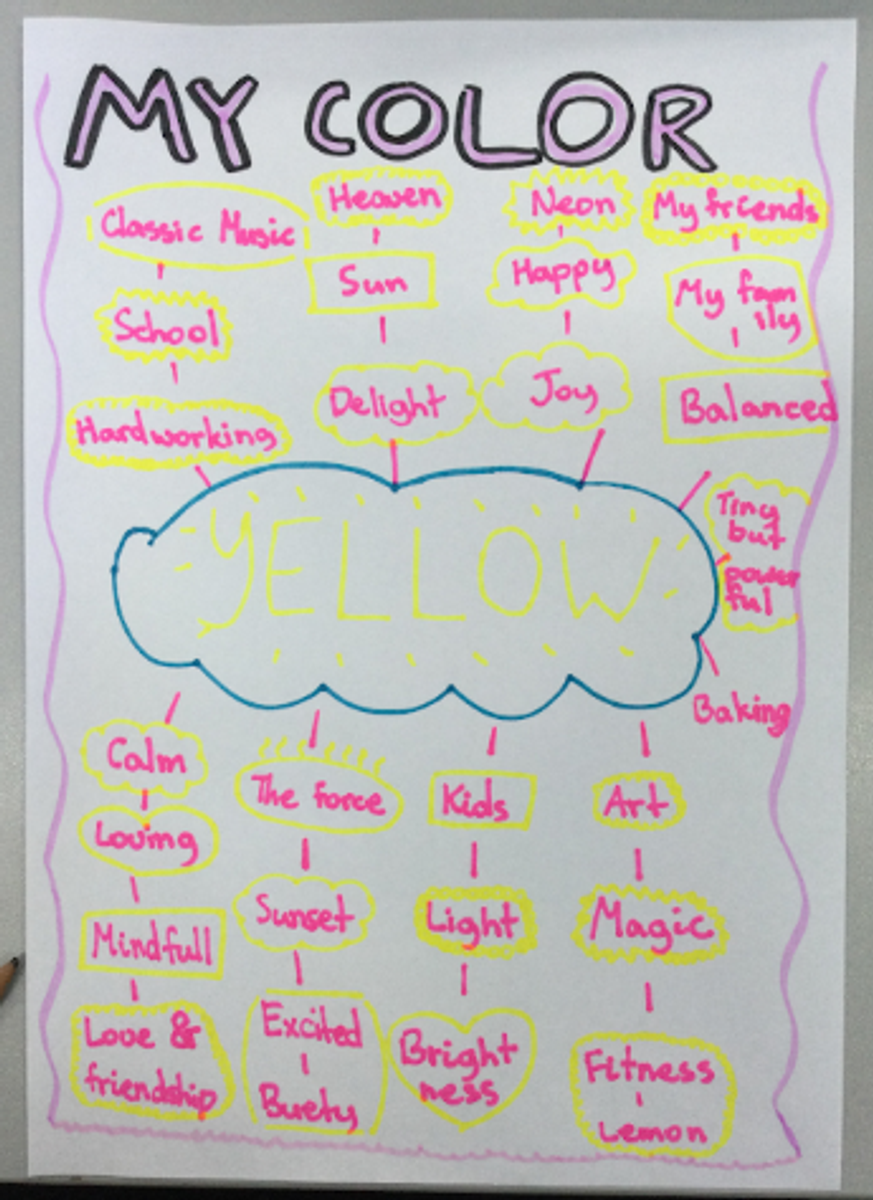 MY COLOR
Classic Music
School
Hardworking
Heaven
Sun
Delight
Neon
Happy
Joy
My friends
My fam
ily
Balanced
Tiny
but
power
ful
YELLOW
Baking
Calm
Loving
Mindfull
Love &
friendship
The force
Sunset
Excited
Buety
Kids
Light
Bright
ness
Art
Magic
Fitness
Lemon